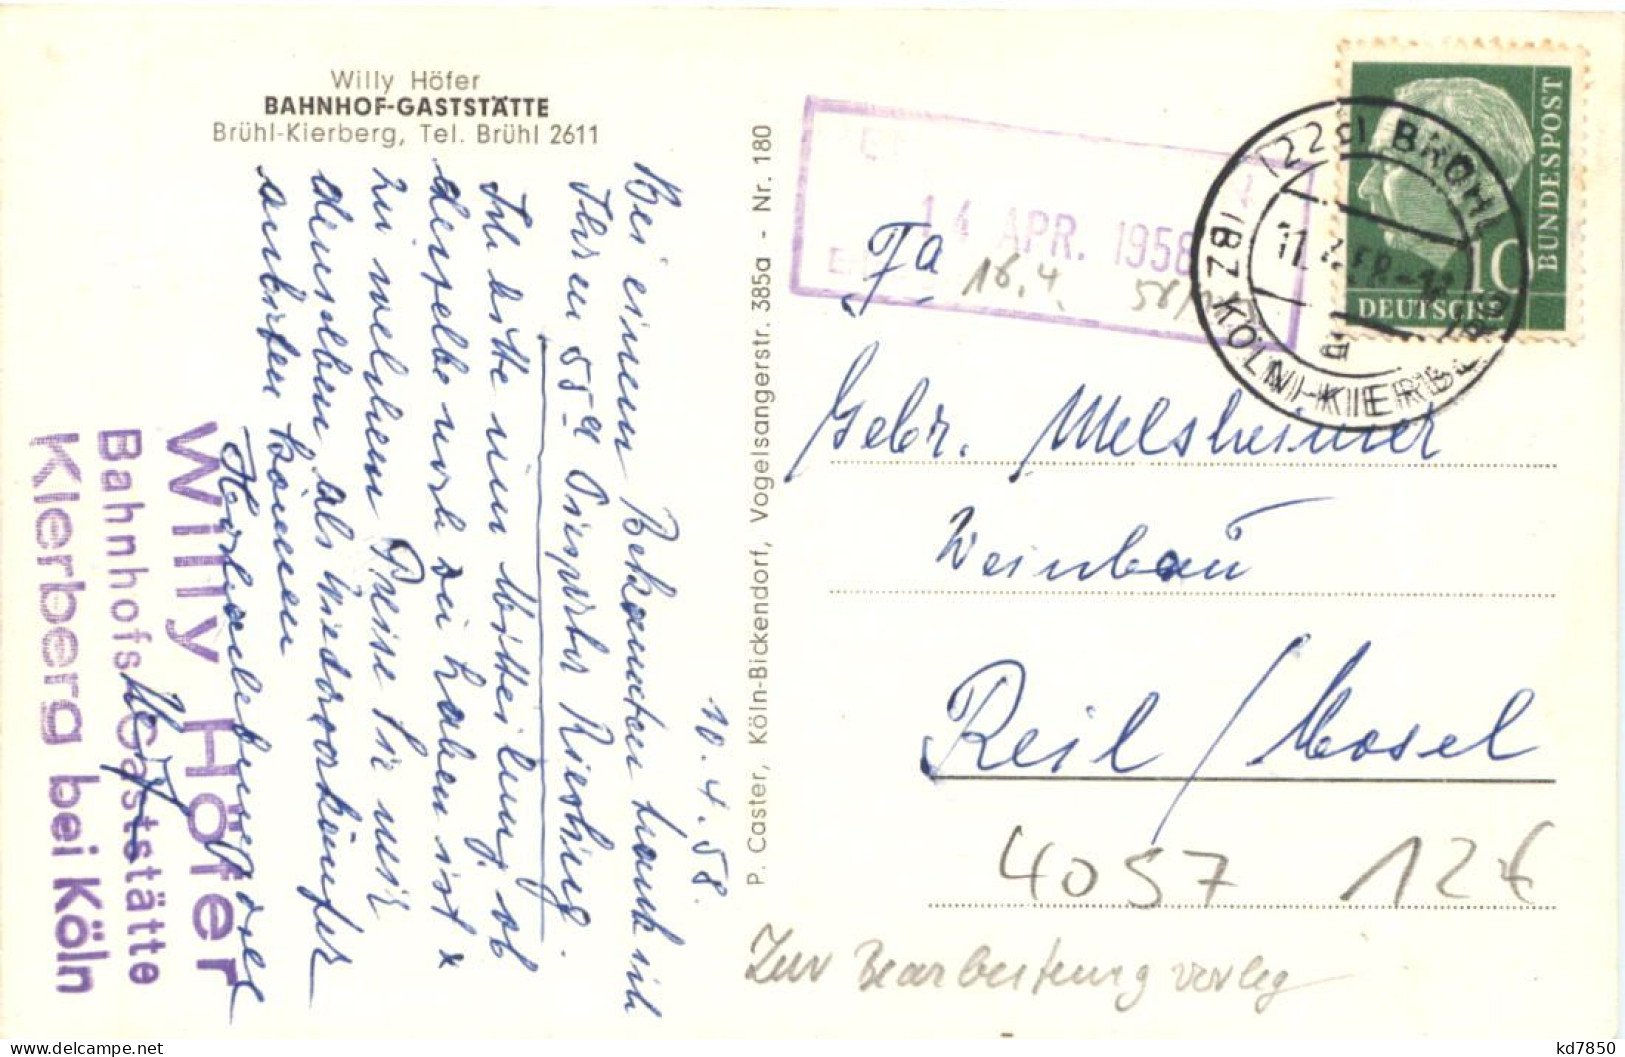 Willy Höfer
BAHNHOF-GASTSTÄTTE
Brühl-Kierberg, Tel. Brühl 2611
10.4.58.
Bei einem Bekannten trank ich
Ihren 55er Piesporter Riesling.
Ich bitte um Mitteilung, ob
derselbe noch zu haben ist x
zu welchem Preise Sie mir
denselben als Wiederverkäufer
anbieten können
Hochachtungsvoll
Willy Höfer
Bahnhofs-Gaststätte
Kierberg bei Köln
P. Caster, Köln-Bickendorf, Vogelsangerstr. 385a - Nr. 180
14 APR. 1958
16.4.
(22c) BRÜHL
BZ KÖLN-KIERBERG
DEUTSCHE
BUNDESPOST
10
Fa
Gebr. Melsheimer
Weinbau
Reil/Mosel
4057 12€
Zur Bearbeitung vorleg
kd7850